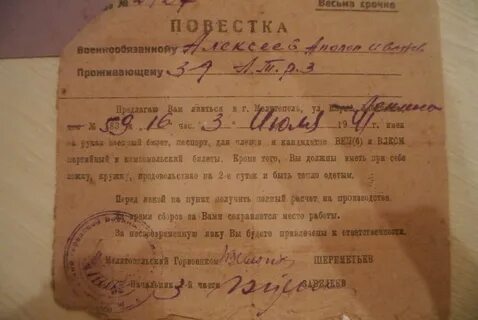 № 2127 Весьма срочно
ПОВЕСТКА
Военнообязанному Алексеев
Проживающему 39
Предлагаю Вам явиться в г. Мелитополь, ул. Ленина
№ 59 16 час. 3 Июля 1941 г. имея
на руках военный билет, паспорт, для членов и кандидатов ВКП(б) и ВЛКСМ
партийный и комсомольский билеты. Кроме того, Вы должны иметь при себе
ложку, кружку, продовольствие на 2-е суток и быть тепло одетым.
Перед явкой на пункт получить полный расчет на производстве.
Во время сборов за Вами сохраняется место работы.
За несвоевременную явку Вы будете привлечены к ответственности.
Мелитопольский Горвоенком ШЕРЕМЕТЬЕВ
Начальник 3-й части